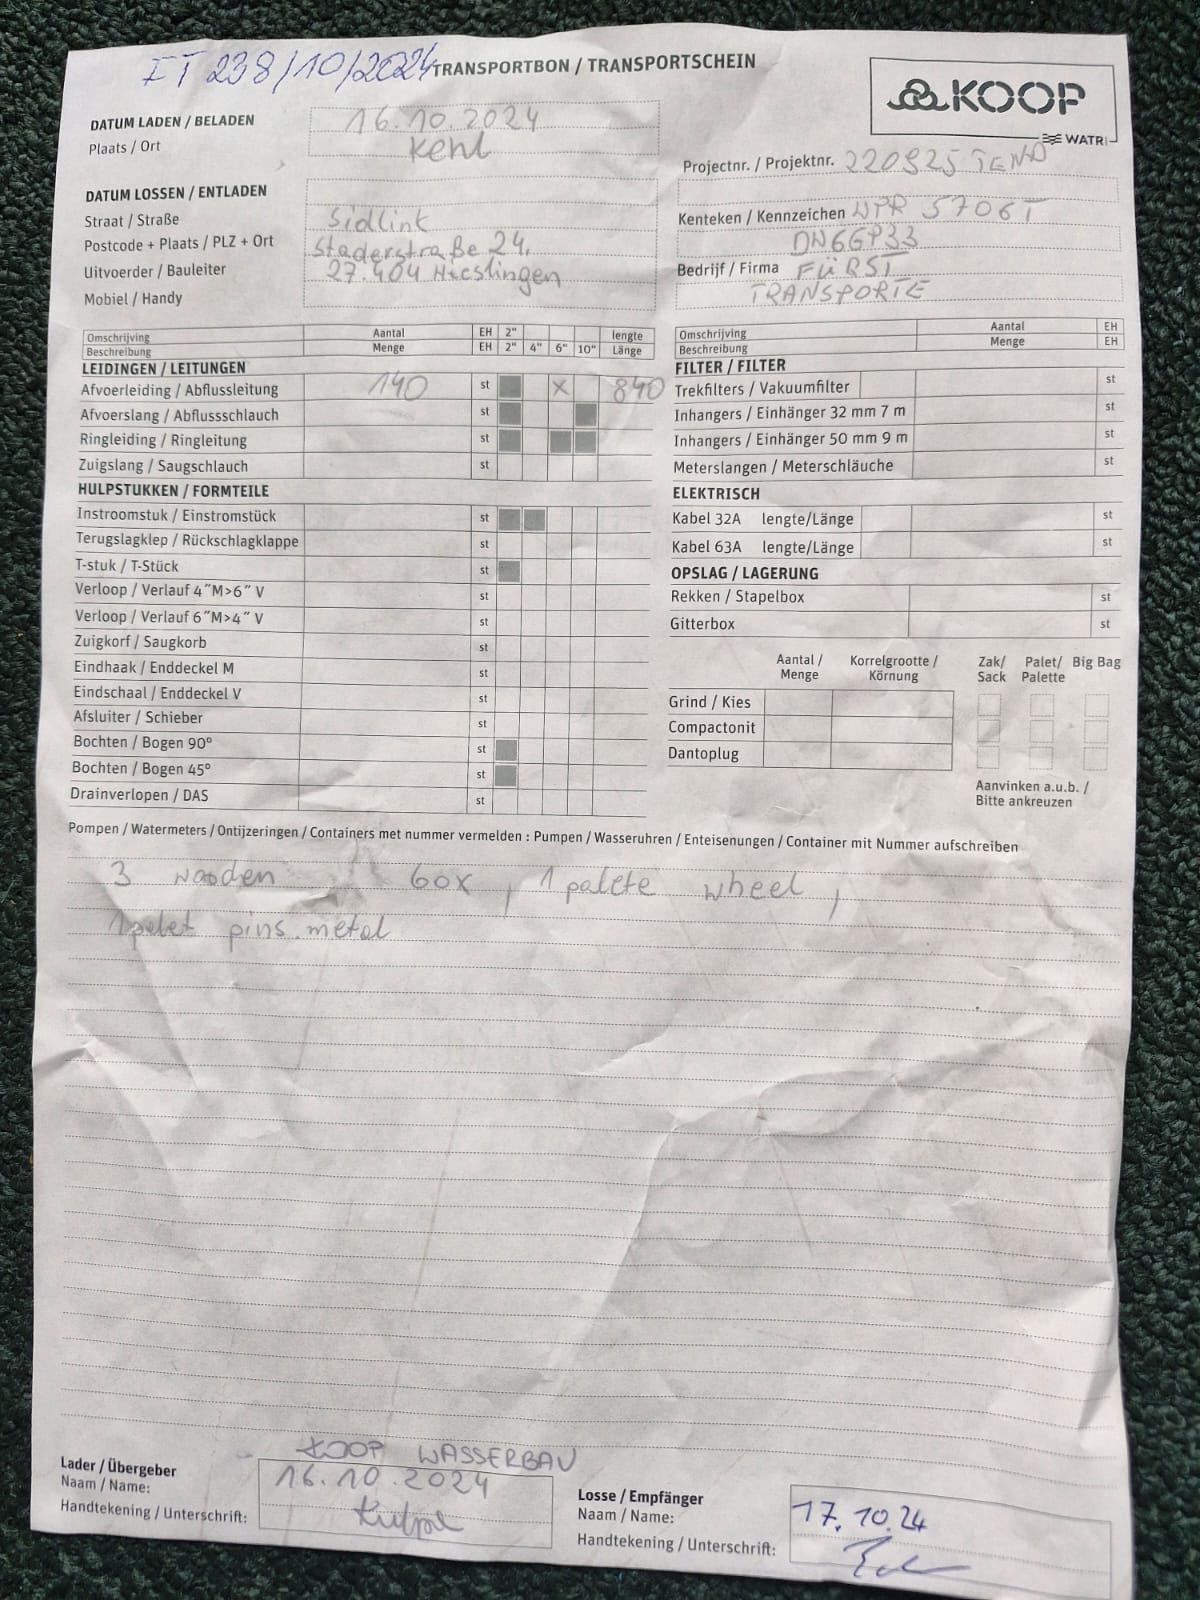 FT 238/10/2024
TRANSPORTBON / TRANSPORTSCHEIN
KOOP
WATR
DATUM LADEN / BELADEN 16.10.2024
Plaats / Ort Kehl
DATUM LOSSEN / ENTLADEN
Straat / Straße Südlink
Postcode + Plaats / PLZ + Ort Staderstraße 24,
Uitvoerder / Bauleiter 27.404
Mobiel / Handy
Projectnr. / Projektnr. 220925
Kenteken / Kennzeichen WPR 5706T
DN66P33
Bedrijf / Firma FÜRST
TRANSPORTE
Omschrijving Aantal EH 2" lengte
Beschreibung Menge EH 2" 4" 6" 10" Länge
LEIDINGEN / LEITUNGEN
Afvoerleiding / Abflussleitung 140 st x 840
Afvoerslang / Abflussschlauch st
Ringleiding / Ringleitung st
Zuigslang / Saugschlauch st
HULPSTUKKEN / FORMTEILE
Instroomstuk / Einstromstück st
Terugslagklep / Rückschlagklappe st
T-stuk / T-Stück st
Verloop / Verlauf 4"M>6" V st
Verloop / Verlauf 6"M>4" V st
Zuigkorf / Saugkorb st
Eindhaak / Enddeckel M st
Eindschaal / Enddeckel V st
Afsluiter / Schieber st
Bochten / Bogen 90° st
Bochten / Bogen 45° st
Drainverlopen / DAS st
Omschrijving Aantal EH
Beschreibung Menge EH
FILTER / FILTER
Trekfilters / Vakuumfilter st
Inhangers / Einhänger 32 mm 7 m st
Inhangers / Einhänger 50 mm 9 m st
Meterslangen / Meterschläuche st
ELEKTRISCH
Kabel 32A lengte/Länge st
Kabel 63A lengte/Länge st
OPSLAG / LAGERUNG
Rekken / Stapelbox st
Gitterbox st
Aantal / Korrelgrootte / Zak/ Palet/ Big Bag
Menge Körnung Sack Palette
Grind / Kies
Compactonit
Dantoplug
Aanvinken a.u.b. /
Bitte ankreuzen
Pompen / Watermeters / Ontijzeringen / Containers met nummer vermelden : Pumpen / Wasseruhren / Enteisenungen / Container mit Nummer aufschreiben
3 wooden box, 1 palete wheel,
1 palet pins metal
KOOP WASSERBAU
Lader / Übergeber
Naam / Name: 16.10.2024
Handtekening / Unterschrift:
Losse / Empfänger
Naam / Name: 17.10.24
Handtekening / Unterschrift: